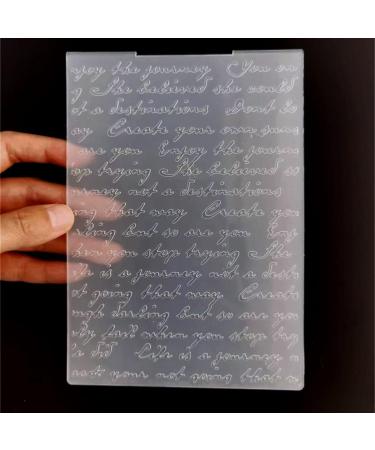 njoy the journey You on
g She believed she could
t a destinations Dont lo
ay Create your own suns
are you Enjoy the journ
op trying She believed s
rney not a destinations
ng that way Create your
ling but so are you Enj
en you stop trying She
fe is a journey not a desti
ot going that way Creat
ugh darling but so are you
ly fail when you stop try
e did Life is a journey n
your not going that w